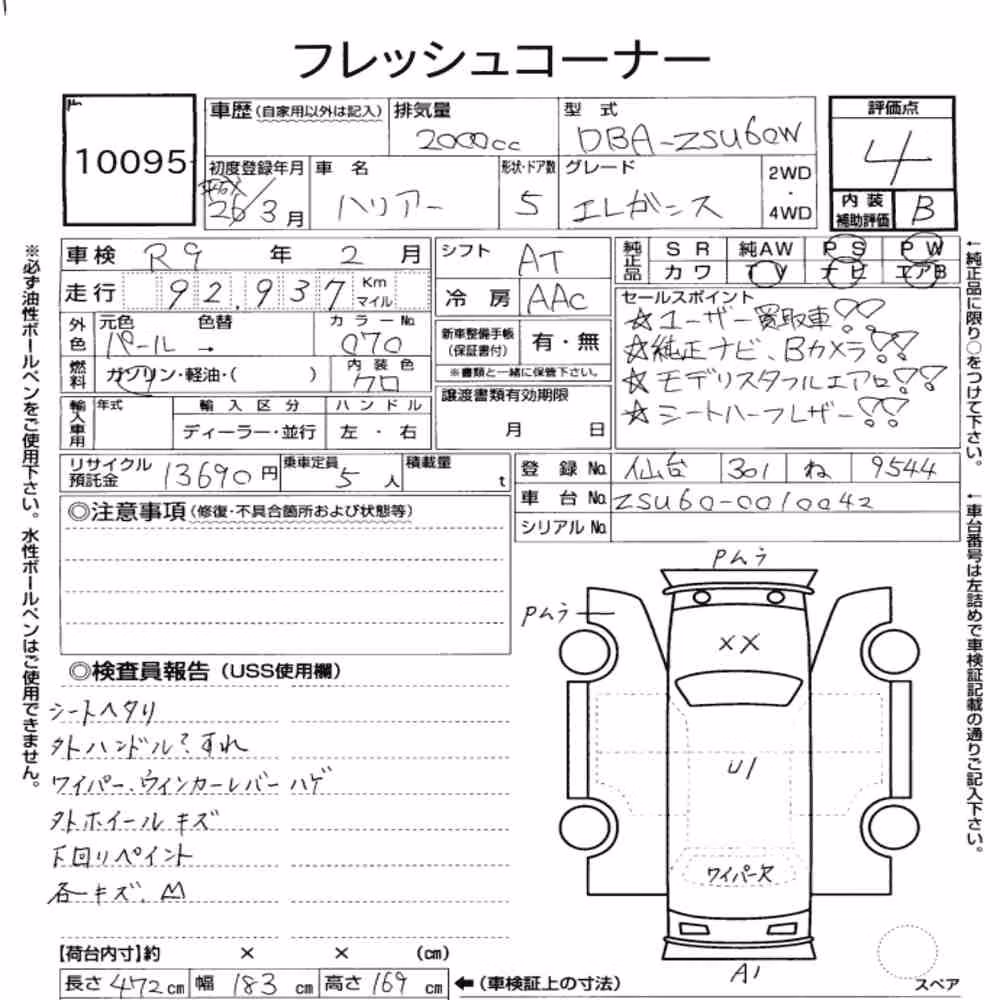 フレッシュコーナー
10095
車歴(自家用以外は記入)
排気量
2000cc
型式
DBA-ZSU60W
評価点
4
初度登録年月
26/3月
車名
ハリアー
形状・ドア数
5
グレード
エレガンス
2WD
・
4WD
内装
補助評価
B
車検 R9年 2月
シフト
AT
純正品
SR 純AW PS PW
カワ TV ナビ エアB
走行 92,937 Km
マイル
冷房 AAC
セールスポイント
☆ユーザー買取車!!
☆純正ナビ、Bカメラ!!
☆モデリスタフルエアロ!!
☆シートハーフレザー!!
外色
元色 色替
パール→
カラーNo.
070
新車整備手帳
(保証書付)
有・無
※書類と一緒に保管下さい。
燃料
ガソリン・軽油・( )
内装色
クロ
輸入車用
年式
輸入区分
ディーラー・並行
ハンドル
左・右
譲渡書類有効期限
月 日
リサイクル
預託金
13690円
乗車定員
5人
積載量
t
登録No. 仙台 301 ね 9544
車台No. ZSU60-0010042
シリアルNo.
◎注意事項(修復・不具合箇所および状態等)
◎検査員報告(USS使用欄)
シートヘタリ
外ハンドル?すれ
ワイパー、ウィンカーレバーハゲ
外ホイールキズ
下回りペイント
各キズ、凹
Pムラ
Pムラ
XX
U1
ワイパー欠
A1
スペア
【荷台内寸】約 × × (cm)
長さ472cm 幅183cm 高さ169cm ←(車検証上の寸法)
※必ず油性ボールペンをご使用下さい。水性ボールペンはご使用できません。
←純正品に限り○をつけて下さい。
←車台番号は左詰めで車検証記載の通りご記入下さい。